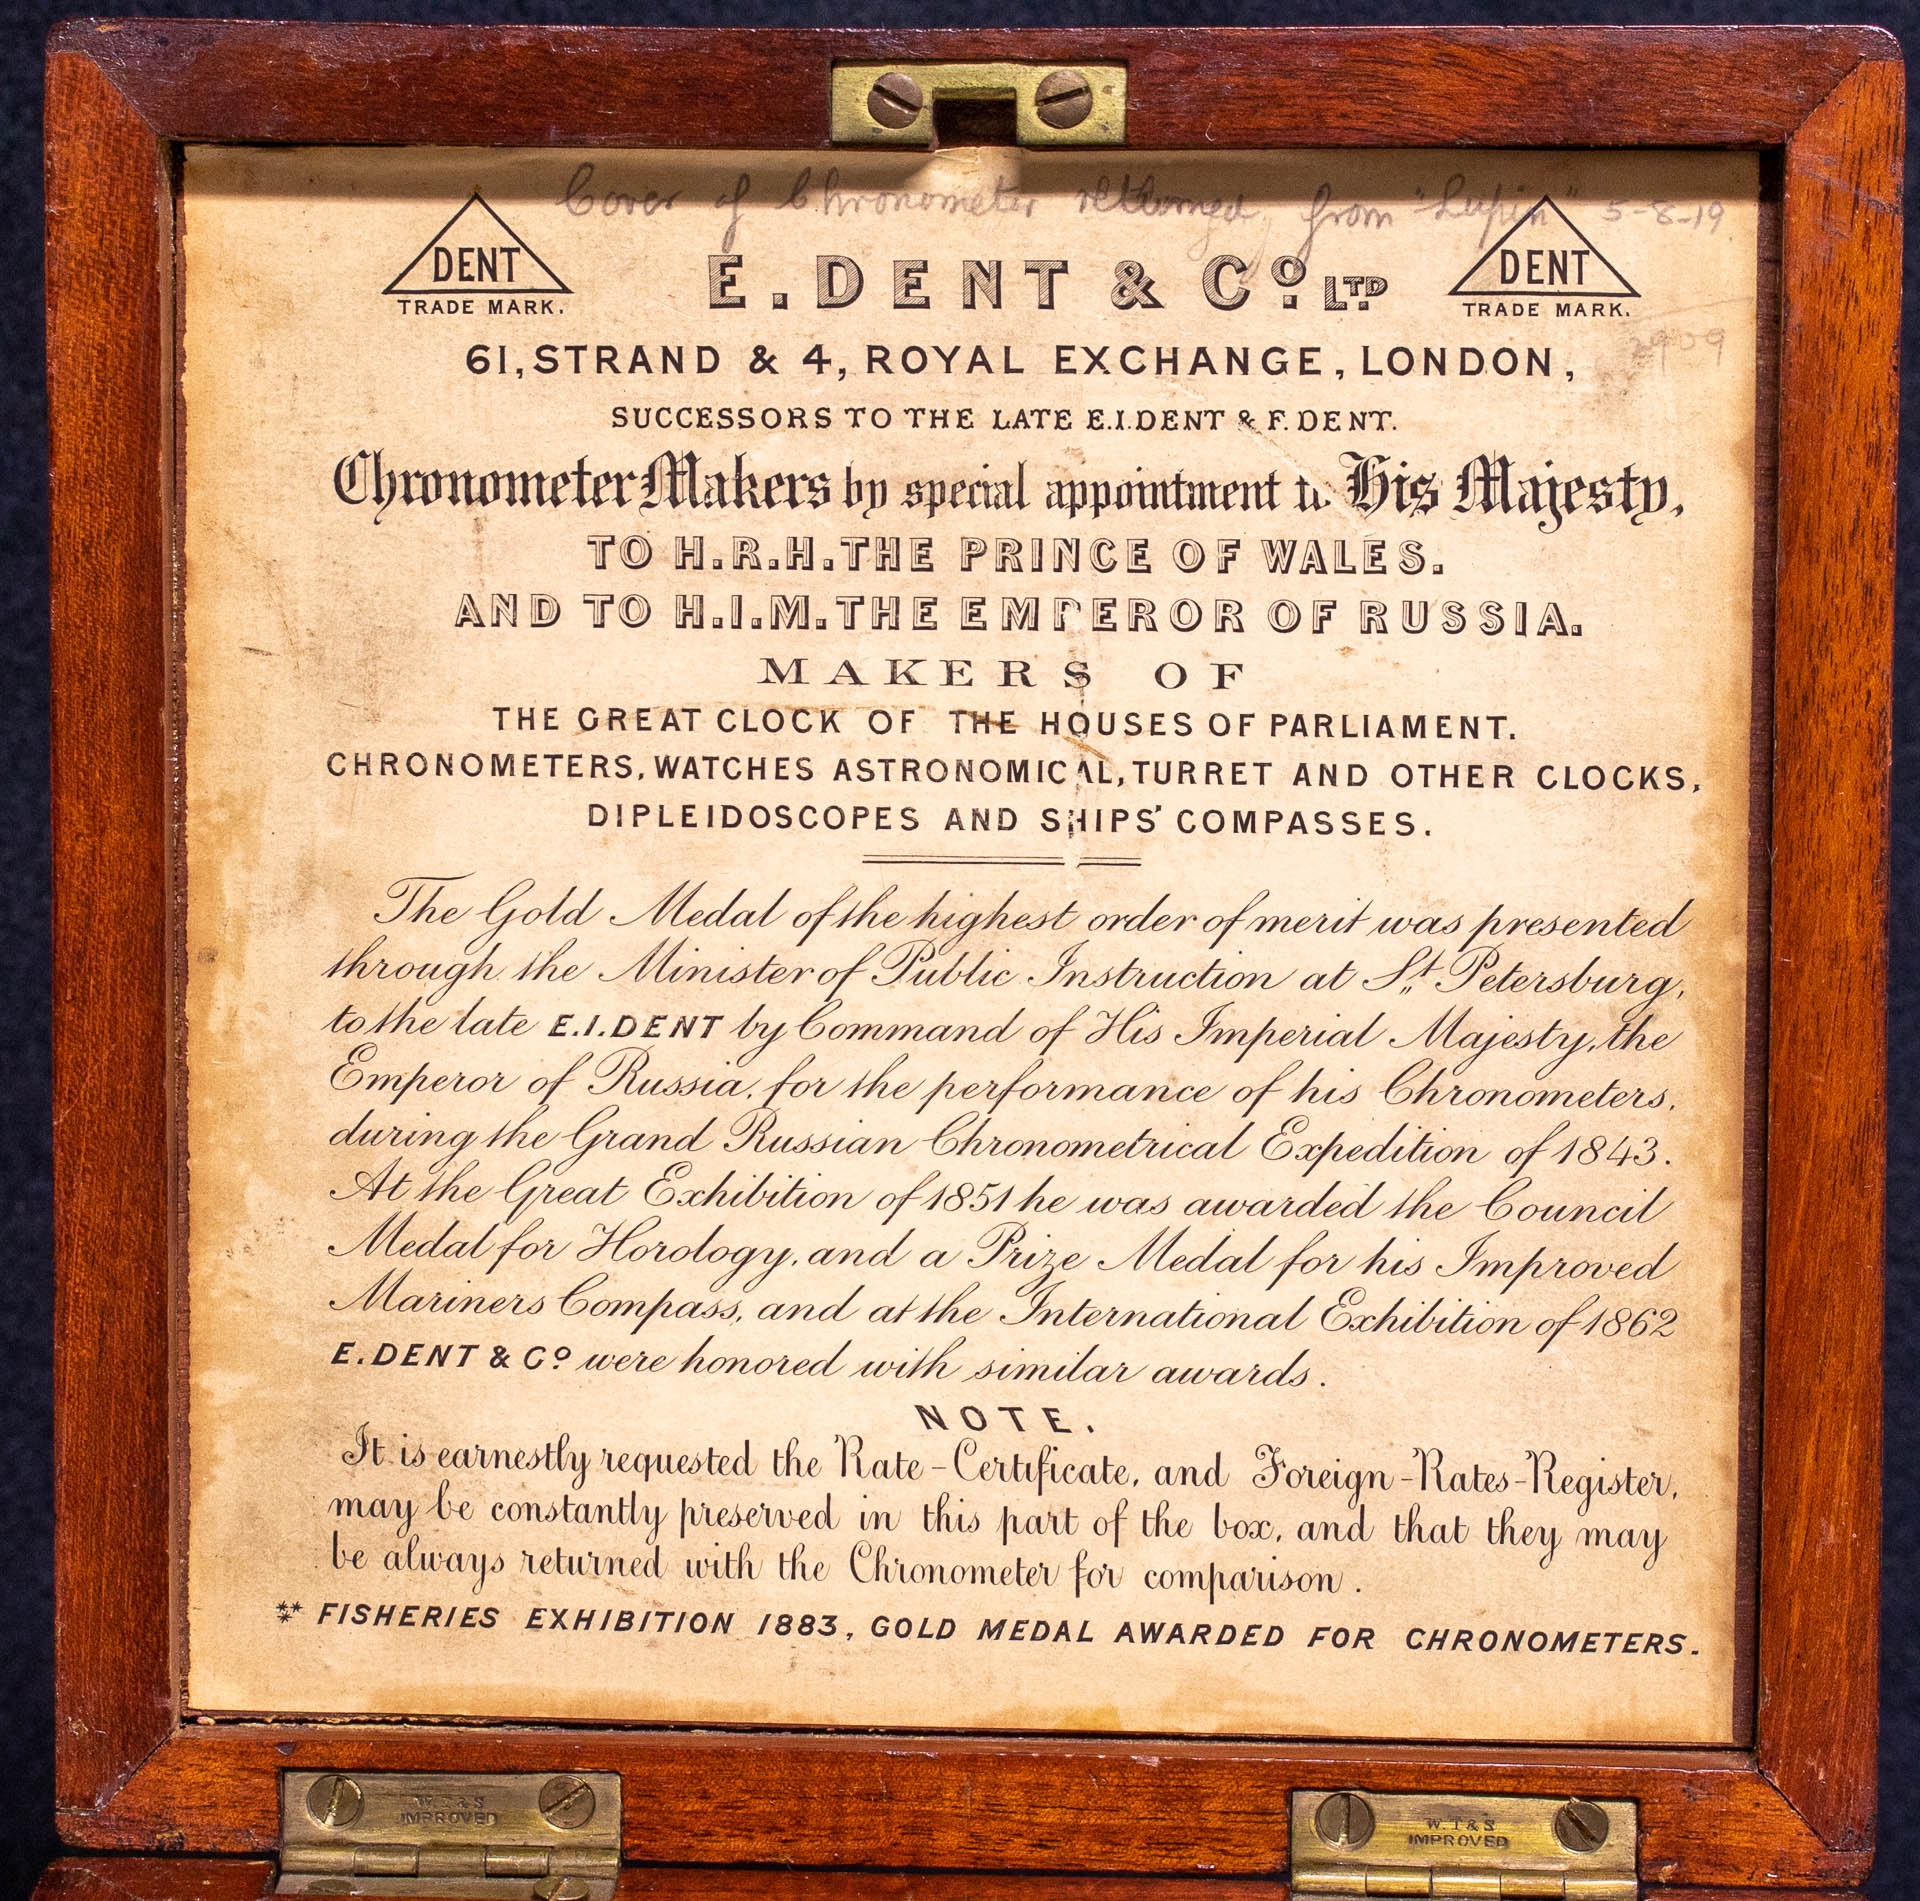 Cover of Chronometer returned from "Lupin" 5-8-19
DENT
TRADE MARK.
E. DENT & Co. LTD.
DENT
TRADE MARK.
2909
61, STRAND & 4, ROYAL EXCHANGE, LONDON,
SUCCESSORS TO THE LATE E.I. DENT & F. DENT.
Chronometer Makers by special appointment to His Majesty,
TO H.R.H. THE PRINCE OF WALES.
AND TO H.I.M. THE EMPEROR OF RUSSIA.
MAKERS OF
THE GREAT CLOCK OF THE HOUSES OF PARLIAMENT.
CHRONOMETERS, WATCHES ASTRONOMICAL, TURRET AND OTHER CLOCKS,
DIPLEIDOSCOPES AND SHIPS' COMPASSES.
The Gold Medal of the highest order of merit was presented
through the Minister of Public Instruction at St. Petersburg,
to the late E.I. DENT by Command of His Imperial Majesty, the
Emperor of Russia, for the performance of his Chronometers,
during the Grand Russian Chronometrical Expedition of 1843.
At the Great Exhibition of 1851 he was awarded the Council
Medal for Horology, and a Prize Medal for his Improved
Mariners Compass, and at the International Exhibition of 1862
E. DENT & Co. were honored with similar awards.
NOTE.
It is earnestly requested the Rate-Certificate, and Foreign-Rates-Register,
may be constantly preserved in this part of the box, and that they may
be always returned with the Chronometer for comparison.
*** FISHERIES EXHIBITION 1883, GOLD MEDAL AWARDED FOR CHRONOMETERS.
W. T & S
IMPROVED
W. T & S
IMPROVED